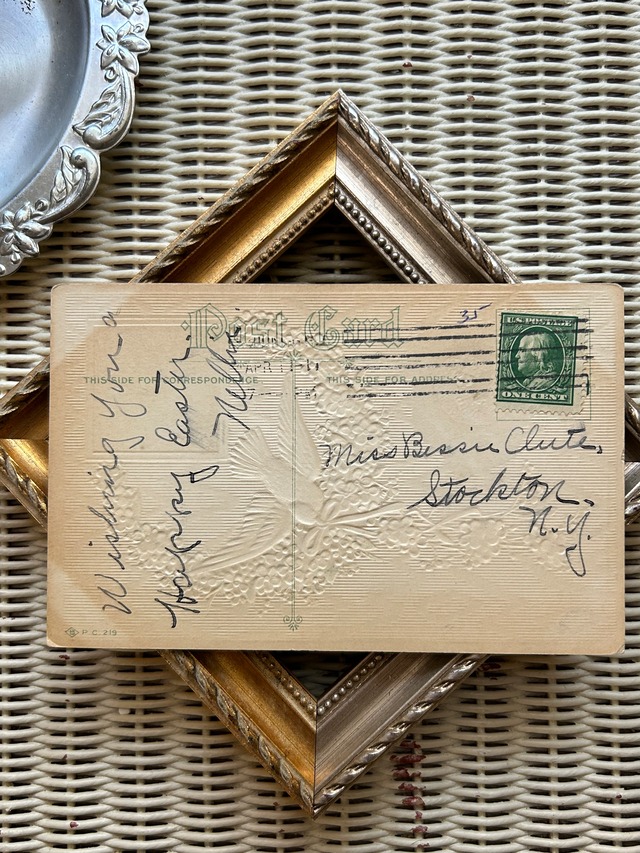 Post Card
35
U.S. POSTAGE
ONE CENT
THIS SIDE FOR CORRESPONDENCE
THIS SIDE FOR ADDRESS
Wishing you a
Happy Easter.
Miss Bessie Clute,
Stockton,
N.Y.
P.C. 219